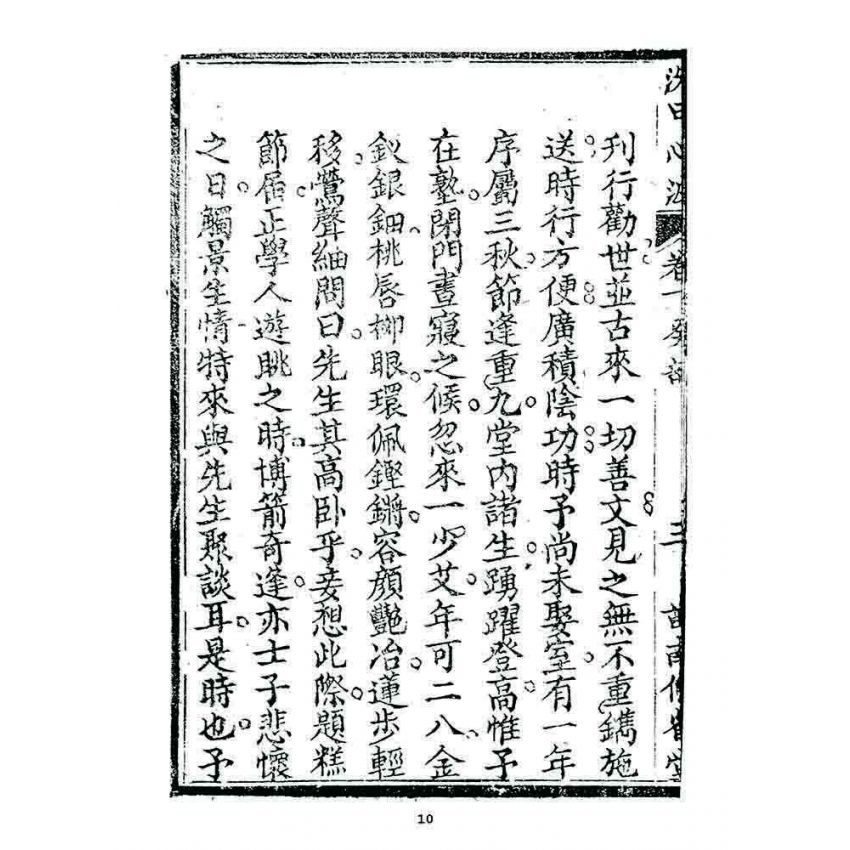 刊行勸世並古來一切善文見之無不重鐫施
送時行方便廣積陰功時予尚未娶室有一年
序屬三秋節逢重九堂內諸生踴躍登高惟予
在塾閉門晝寢之候忽來一少艾年可二八金
釵銀鈿桃唇柳眼環佩鏗鏘容顏艷冶蓮步輕
移鶯聲細問曰先生其高卧乎妾想此際題糕
節届正學人遊眺之時博箭奇逢亦士子悲懷
之日觸景生情特來與先生聚談耳是時也予
卷一
三
10